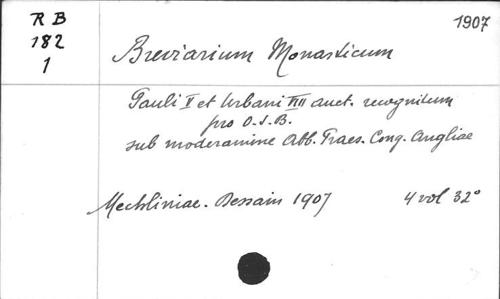 R B
182
1
1907
Breviarium Monasticum
Pauli V et Urbani VIII auct. recognitum
pro O.S.B.
sub moderamine Abb. Praes. Cong. Angliae
Mechliniae. Dessain 1907
4 vol 32°